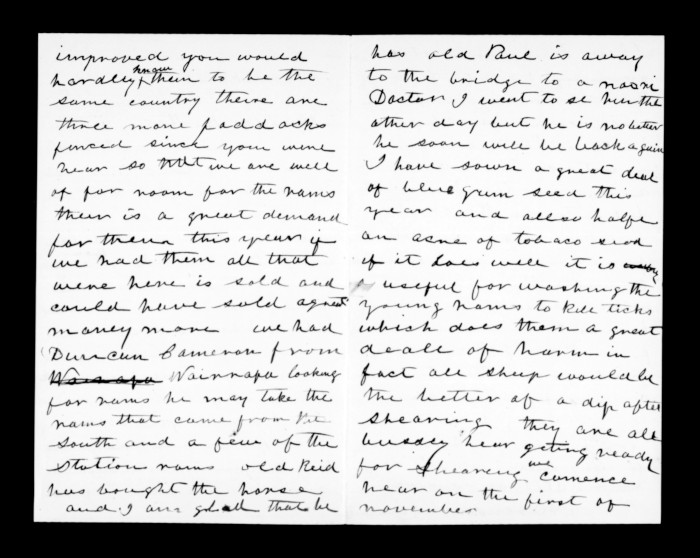 improved you would
hardley know them to be the
same country theire are
three more paddocks
fenced since you were
hear so that we are well
of for room for the rams
their is a great demand
for them this year if
we had them all that
were here is sold and
could have sold a great
maney more we had
Duncan Cameron from
Wairrapa Wairrapa looking
for rams he may take the
rams that came from the
South and a few of the
Station rams old Reid
has bought the horse
and I am glad that he
has old Paul is away
to the bridge to a maori
Doctor I went to se him the
other day but he is no better
he soon will be back again
I have sown a great deal
of blue gum seed this
year and allso halfe
an acre of tobaco seed
if it does well it is
usefull for washing the
young rams to kill ticks
which does them a great
deall of harm in
fact all sheep would be
the better of a dip after
shearing they are all
bussey hear geting ready
for shearing we comence
hear on the first of
november